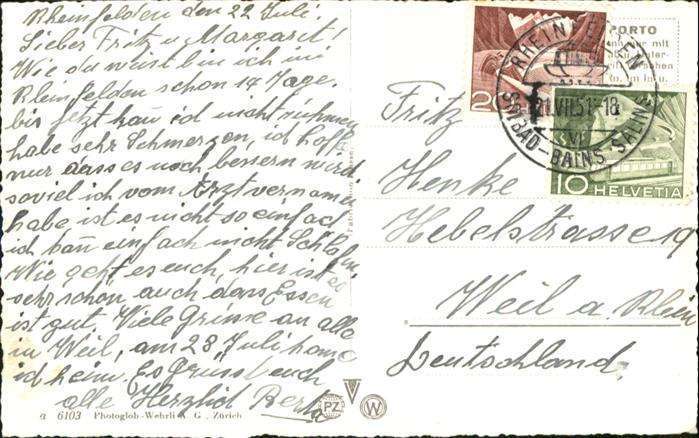 Rheinfelden den 22 Juli.
Lieber Fritz u Margarit!
Wie du weist bin ich in
Rheinfelden schon 14 Tage.
bis jetzt kan ich nicht rühmen
habe sehr Schmerzen, ich hoff
nur dass es noch bessern wird
soviel ich vom Arzt vernomen
habe ist es nicht so einfach
ich kan einfach nicht Schlafen
Wie geht es euch, hier ist es
sehr schön auch das Essen
ist gut. Viele Grüsse an alle
in Weil, am 28 Juli kome
ich heim. Es Grüsst euch
alle Herzlich Berta
a 6103 Photoglob-Wehrli A. G., Zürich
PZ
W
PORTO
20
RHEINFELDEN
21.VII.51-18
SOLBAD-BAINS SALINS
10 HELVETIA
Fritz
Henke
Hebelstrasse 19
Weil a. Rhein
Deutschland.